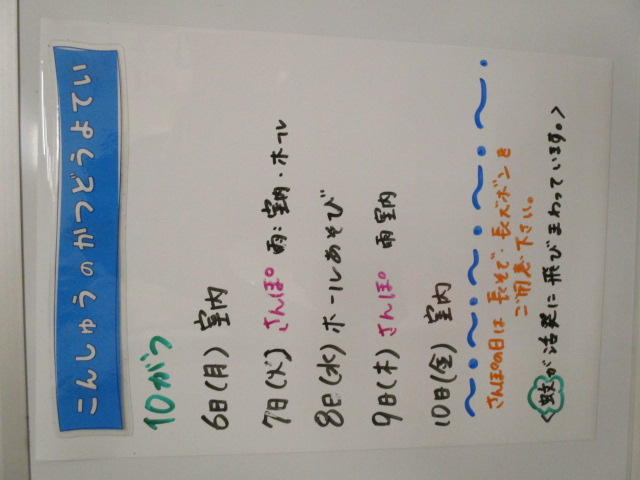 こんしゅうのかつどうよてい
10がつ
6日(月) 室内
7日(火) さんぽ 雨:室内・ホール
8日(水) ホールあそび
9日(木) さんぽ 雨 室内
10日(金) 室内
さんぽの日は長そで・長ズボンを
ご用意下さい。
<蚊が活発に飛びまわっています。>